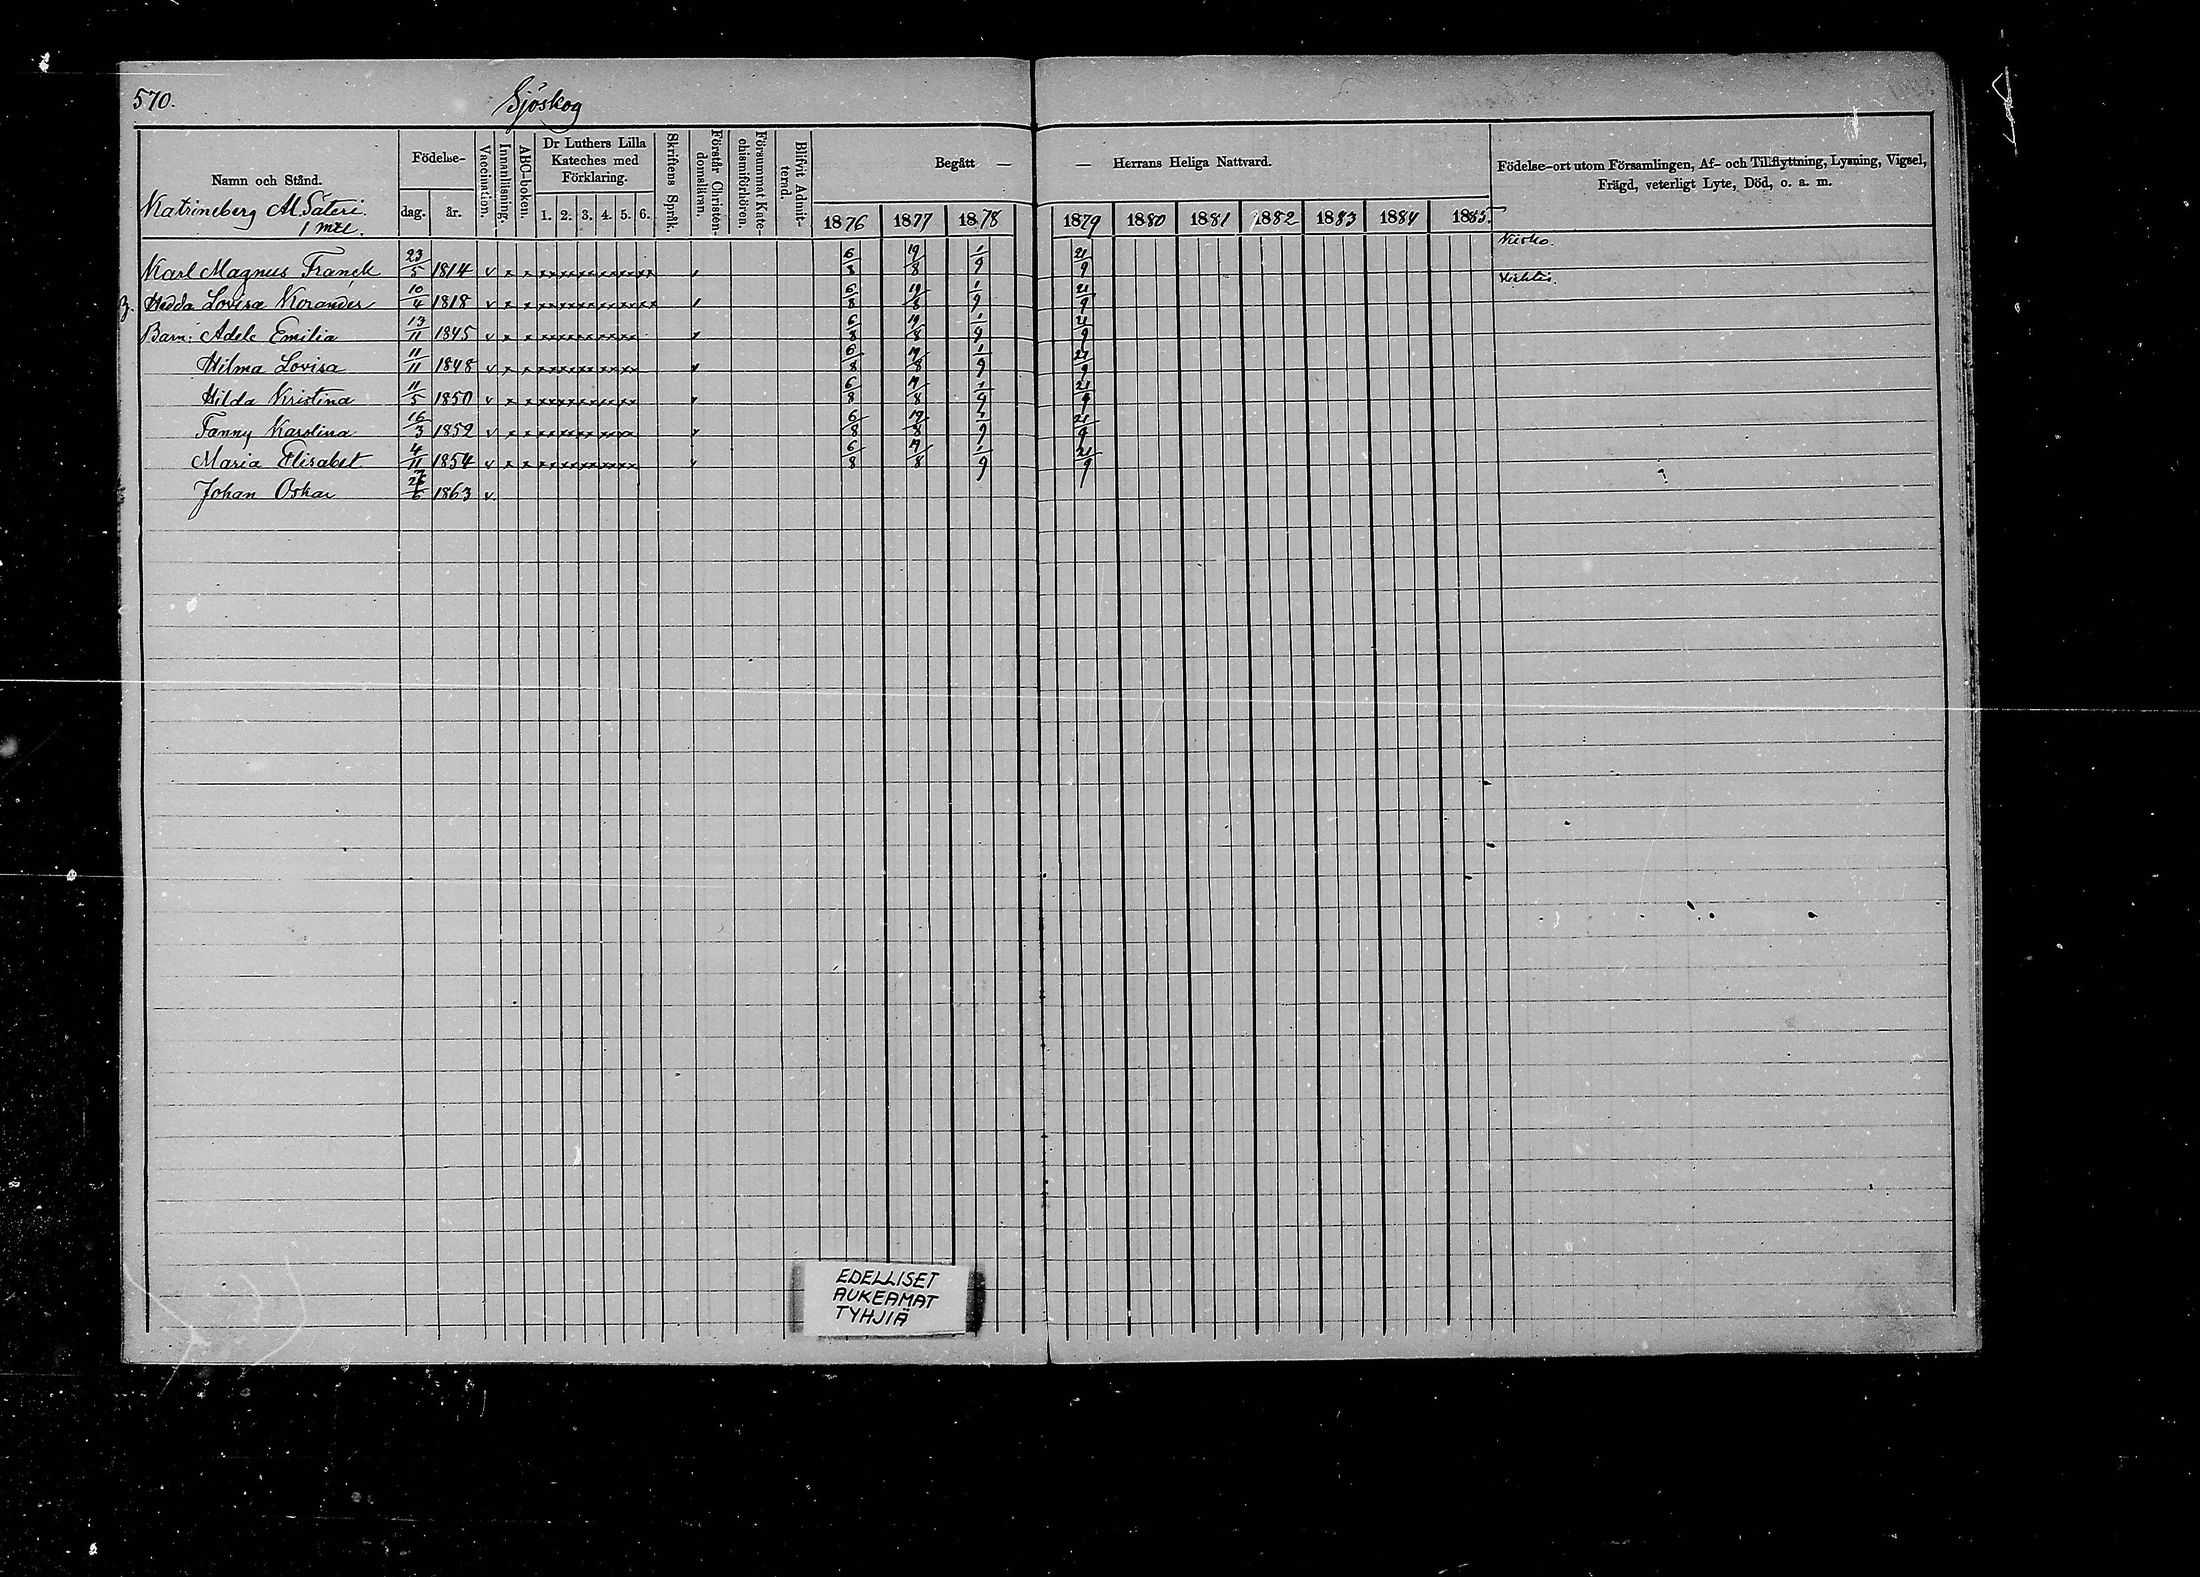 570.
Sjöskog
Namn och Stånd.
Födelse-
dag.
år.
Vaccination.
Innanläsning.
ABC-boken.
Dr Luthers Lilla
Kateches med
Förklaring.
1. 2. 3. 4. 5. 6.
Skriftens Språk.
Förstår Christen-
domsläran.
Försummat Kate-
chismiförhören.
Blifvit Admit-
terad.
Begått — — Herrans Heliga Nattvard.
1876 1877 1878 1879 1880 1881 1882 1883 1884 1885.
Födelse-ort utom Församlingen, Af- och Tillflyttning, Lysning, Vigsel,
Frägd, veterligt Lyte, Död, o. a. m.
Katrineberg Al. Säteri.
1 mtl.
Karl Magnus Franck 23/5 1814 v x x 6/8 19/8 1/9 21/9 Kisko.
Hedda Lovisa Korander 10/4 1818 v x x 6/8 19/8 1/9 21/9
Barn: Adele Emilia 13/11 1845 v x x 6/8 19/8 1/9 21/9
Hilma Lovisa 11/11 1848 v x x 6/8 19/8 1/9 21/9
Hilda Kristina 11/5 1850 v x x 6/8 19/8 1/9 21/9
Fanny Karolina 16/3 1852 v x x 6/8 19/8 1/9 21/9
Maria Elisabet 4/11 1854 v x x 6/8 19/8 1/9 21/9
Johan Oskar 1863 v
EDELLISET
AUKEAMAT
TYHJIÄ